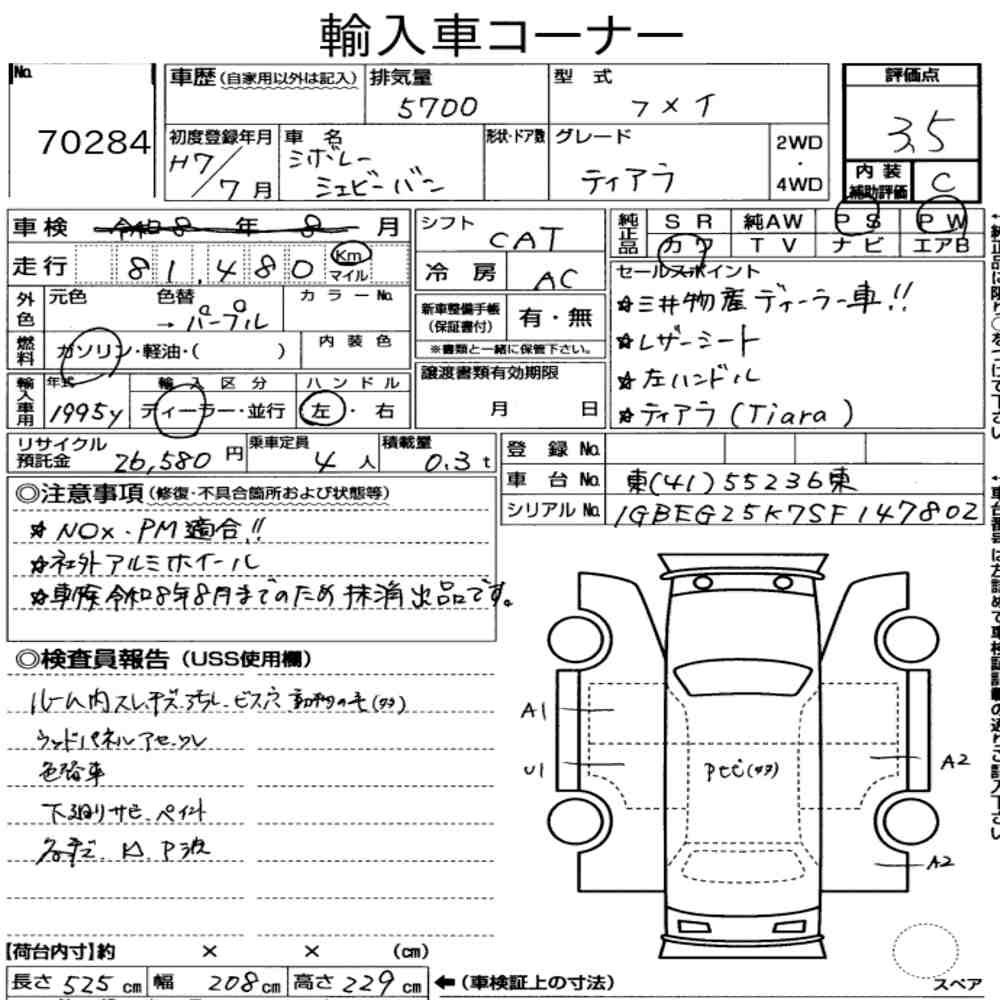 輸入車コーナー
No.
70284
車歴(自家用以外は記入)
排気量
5700
型式
フメイ
評価点
3.5
初度登録年月
H7/7月
車名
シボレー
シェビーバン
形状・ドア数
グレード
ティアラ
2WD
・
4WD
内装
補助評価
C
車検 令和8年8月
シフト
CAT
純正品
SR 純AW PS PW
カワ TV ナビ エアB
走行 81,480 Km
マイル
冷房 AC
セールスポイント
☆三井物産ディーラー車!!
☆レザーシート
☆左ハンドル
☆ティアラ(Tiara)
外色
元色 色替 カラーNo.
→パープル
新車整備手帳
(保証書付)
有・無
※書類と一緒に保管下さい。
燃料
ガソリン・軽油・( )
内装色
譲渡書類有効期限
月 日
輸入車用
年式 輸入区分 ハンドル
1995y ディーラー・並行 左・右
リサイクル
預託金 26,580円
乗車定員
4人
積載量
0.3t
登録No.
車台No. 東(41)55236東
シリアルNo. 1GBEG25K7SF147802
◎注意事項(修復・不具合箇所および状態等)
☆NOx・PM適合!!
☆社外アルミホイール
☆車検令和8年8月までのため抹消出品です。
◎検査員報告(USS使用欄)
ルーム内スレ キズ 汚れ ビス穴
ウッドパネルアセ ワレ
色替車
下廻りサビ ペイント
A1
U1
A2
A2
スペア
【荷台内寸】約 × × (cm)
長さ525cm 幅208cm 高さ229cm ←(車検証上の寸法)